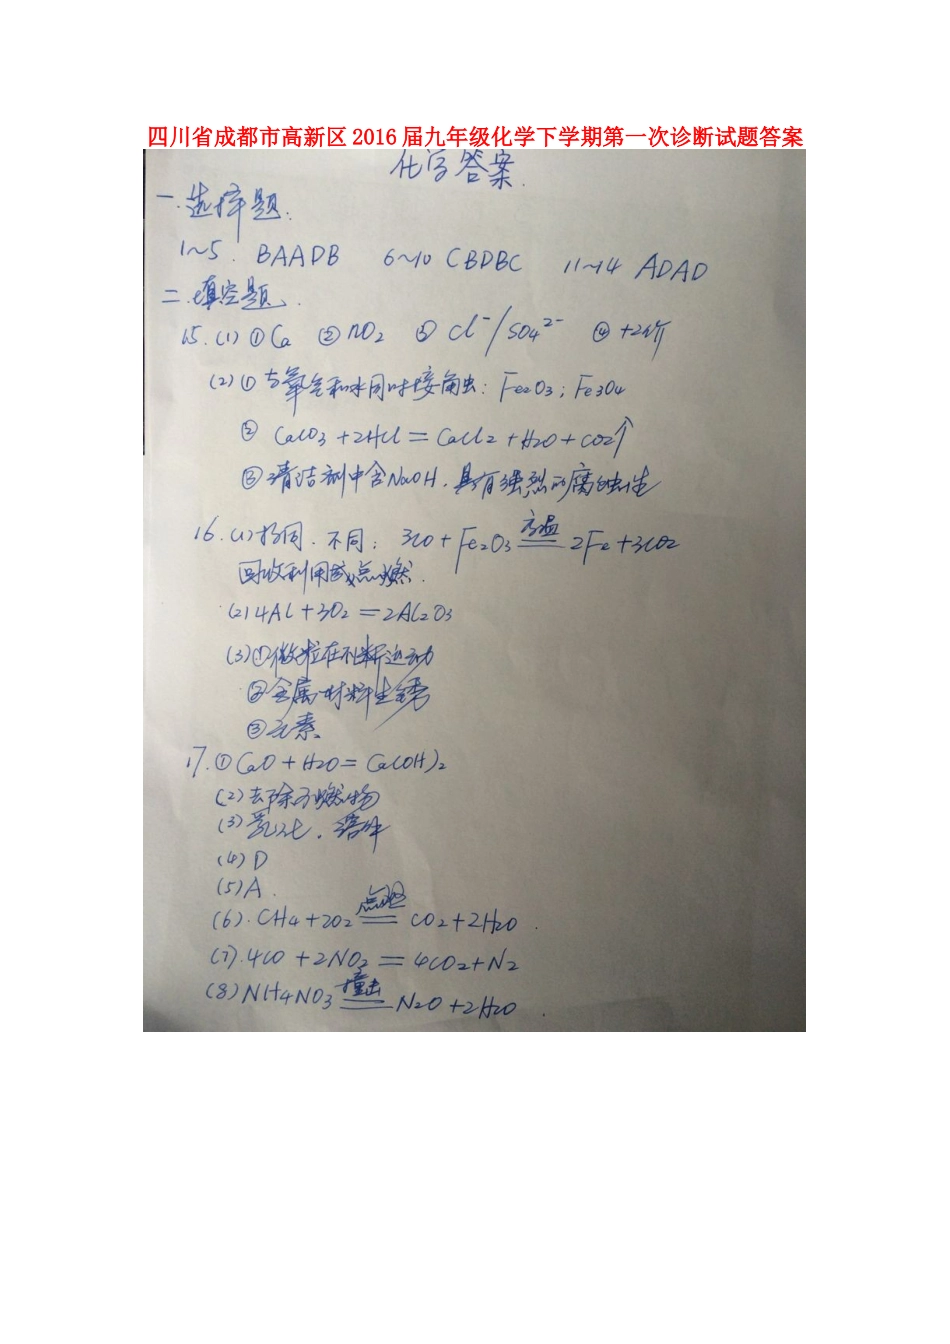 四川省成都市高新区 2016 届九年级化学下学期第一次诊断试题答案
化学答案.
一.选择题.
1~5. BAADB 6~10 CBDBC 11~14 ADAD
二.填空题.
15.(1)①Ca ②NO2 ③Cl⁻/SO4²⁻ ④+2价
(2)①与氧气和水同时接触; Fe2O3; Fe3O4
② CaCO3+2HCl=CaCl2+H2O+CO2↑
③清洁剂中含NaOH,具有强烈的腐蚀性
16.(1)相同.不同; 3CO+Fe2O3 高温 = 2Fe+3CO2
回收利用或点燃.
(2)4Al+3O2=2Al2O3
(3)①微粒在不断运动
②金属材料生锈
③元素
17.①CaO+H2O=Ca(OH)2
(2)去除可燃物
(3)氮化,溶解
(4)D
(5)A.
(6).CH4+2O2 点燃 = CO2+2H2O.
(7).4CO+2NO2=4CO2+N2
(8)NH4NO3 撞击 = N2O+2H2O.